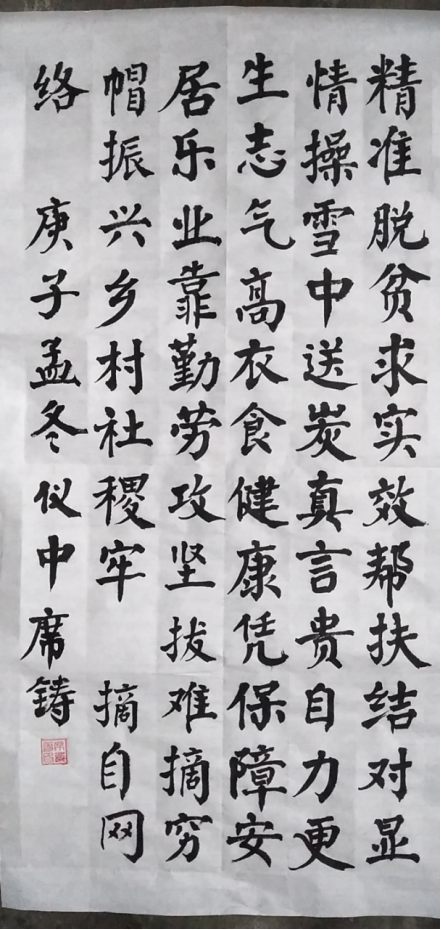 精准脱贫求实效帮扶结对显
情操雪中送炭真言贵自力更
生志气高衣食健康凭保障安
居乐业靠勤劳攻坚拔难摘穷
帽振兴乡村社稷牢 摘自网
络 庚子孟冬仪中席铸